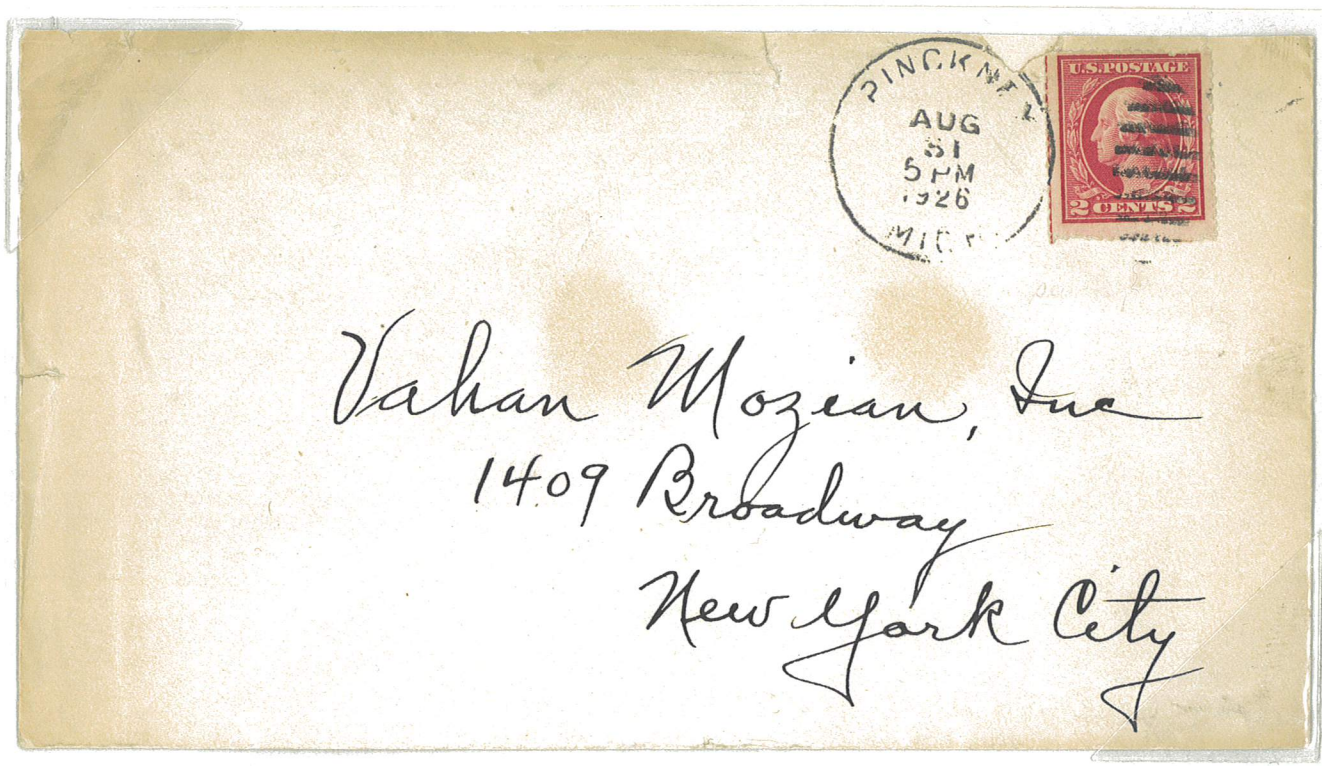 PINCKNEY
AUG
31
5 PM
1926
MICH
U.S.POSTAGE
2 CENTS 2
Vahan Mozian, Inc
1409 Broadway
New York City